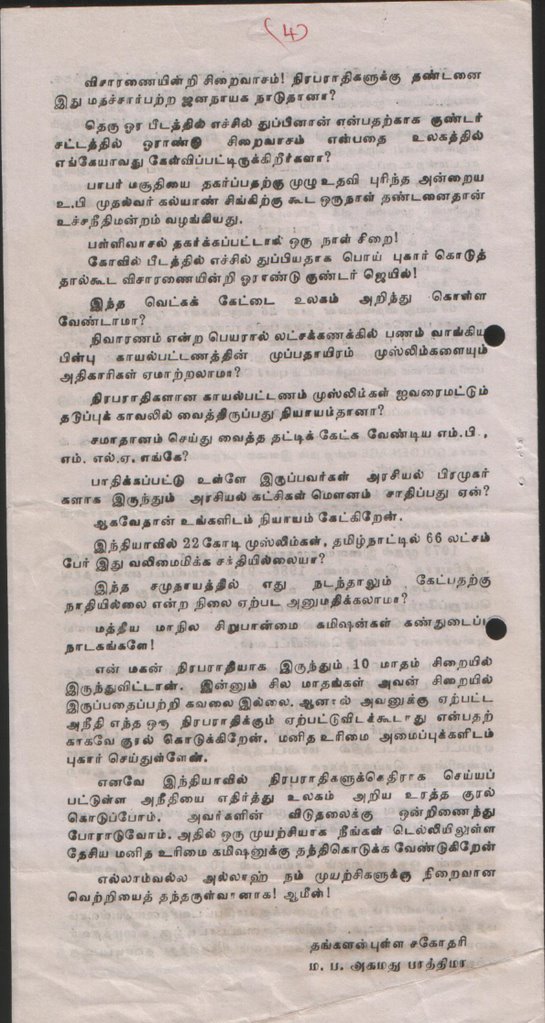 (4)
விசாரணையின்றி சிறைவாசம்! நிரபராதிகளுக்கு தண்டனை
இது மதச்சார்பற்ற ஜனநாயக நாடுதானா?
தெரு ஓர பீடத்தில் எச்சில் துப்பினான் என்பதற்காக குண்டர்
சட்டத்தில் ஓராண்டு சிறைவாசம் என்பதை உலகத்தில்
எங்கேயாவது கேள்விப்பட்டிருக்கிறீர்களா?
பாபர் மசூதியை தகர்ப்பதற்கு முழு உதவி புரிந்த அன்றைய
உ.பி முதல்வர் கல்யாண் சிங்கிற்கு கூட ஒருநாள் தண்டனைதான்
உச்சநீதிமன்றம் வழங்கியது.
பள்ளிவாசல் தகர்க்கப்பட்டால் ஒரு நாள் சிறை!
கோவில் பீடத்தில் எச்சில் துப்பியதாக பொய் புகார் கொடுத்
தால்கூட விசாரணையின்றி ஓராண்டு குண்டர் ஜெயில்!
இந்த வெட்கக் கேட்டை உலகம் அறிந்து கொள்ள
வேண்டாமா?
நிவாரணம் என்ற பெயரால் லட்சக்கணக்கில் பணம் வாங்கிய
பின்பு காயல்பட்டணத்தின் முப்பதாயிரம் முஸ்லிம்களையும்
அதிகாரிகள் ஏமாற்றலாமா?
நிரபராதிகளான காயல்பட்டணம் முஸ்லிம்கள் ஐவரைமட்டும்
தடுப்புக் காவலில் வைத்திருப்பது நியாயம்தானா?
சமாதானம் செய்து வைத்த தட்டிக் கேட்க வேண்டிய எம்.பி.,
எம். எல்.ஏ. எங்கே?
பாதிக்கப்பட்டு உள்ளே இருப்பவர்கள் அரசியல் பிரமுகர்
களாக இருந்தும் அரசியல் கட்சிகள் மௌனம் சாதிப்பது ஏன்?
ஆகவேதான் உங்களிடம் நியாயம் கேட்கிறேன்.
இந்தியாவில் 22 கோடி முஸ்லீம்கள், தமிழ்நாட்டில் 66 லட்சம்
பேர் இது வலிமைமிக்க சக்தியில்லையா?
இந்த சமுதாயத்தில் எது நடந்தாலும் கேட்பதற்கு
நாதியில்லை என்ற நிலை ஏற்பட அனுமதிக்கலாமா?
மத்திய மாநில சிறுபான்மை கமிஷன்கள் கண்துடைப்பு
நாடகங்களே!
என் மகன் நிரபராதியாக இருந்தும் 10 மாதம் சிறையில்
இருந்துவிட்டான். இன்னும் சில மாதங்கள் அவன் சிறையில்
இருப்பதைப்பற்றி கவலை இல்லை. ஆனால் அவனுக்கு ஏற்பட்ட
அநீதி எந்த ஒரு நிரபராதிக்கும் ஏற்பட்டுவிடக்கூடாது என்பதற்
காகவே குரல் கொடுக்கிறேன். மனித உரிமை அமைப்புக்களிடம்
புகார் செய்துள்ளேன்.
எனவே இந்தியாவில் நிரபராதிகளுக்கெதிராக செய்யப்
பட்டுள்ள அநீதியை எதிர்த்து உலகம் அறிய உரத்த குரல்
கொடுப்போம். அவர்களின் விடுதலைக்கு ஒன்றிணைந்து
போராடுவோம். அதில் ஒரு முயற்சியாக நீங்கள் டெல்லியிலுள்ள
தேசிய மனித உரிமை கமிஷனுக்கு தந்திகொடுக்க வேண்டுகிறேன்
எல்லாம்வல்ல அல்லாஹ் நம் முயற்சிகளுக்கு நிறைவான
வெற்றியைத் தந்தருள்வானாக! ஆமீன்!
தங்களன்புள்ள சகோதரி
ம. ப. அகமது பாத்திமா